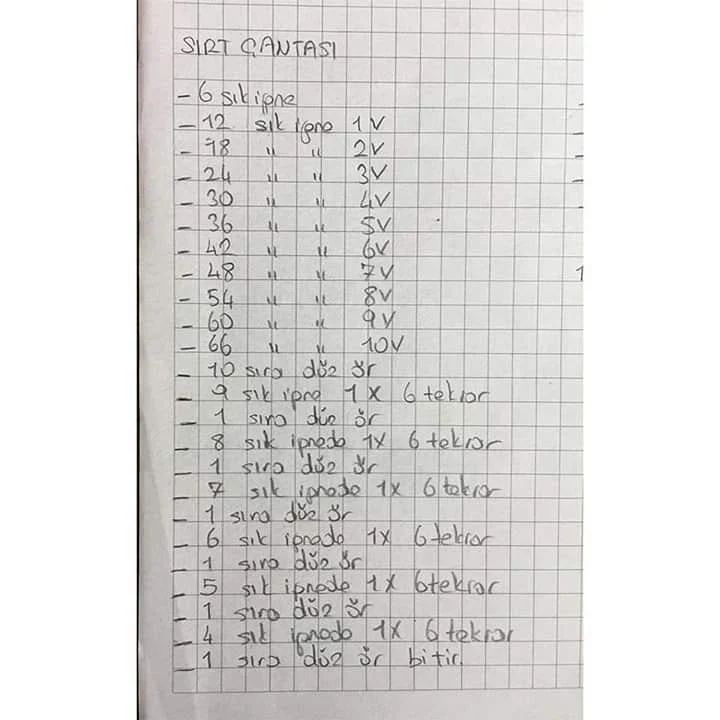 SIRT ÇANTASI
- 6 sık iğne
- 12 sık iğne 1V
- 18 " " 2V
- 24 " " 3V
- 30 " " 4V
- 36 " " 5V
- 42 " " 6V
- 48 " " 7V
- 54 " " 8V
- 60 " " 9V
- 66 " " 10V
- 10 sıra düz ör
- 9 sık iğne 1X 6 tekrar
- 1 sıra düz ör
- 8 sık iğnede 1X 6 tekrar
- 1 sıra düz ör
- 7 sık iğnede 1X 6 tekrar
- 1 sıra düz ör
- 6 sık iğnede 1X 6 tekrar
- 1 sıra düz ör
- 5 sık iğnede 1X 6 tekrar
- 1 sıra düz ör
- 4 sık iğnede 1X 6 tekrar
- 1 sıra düz ör bitir.